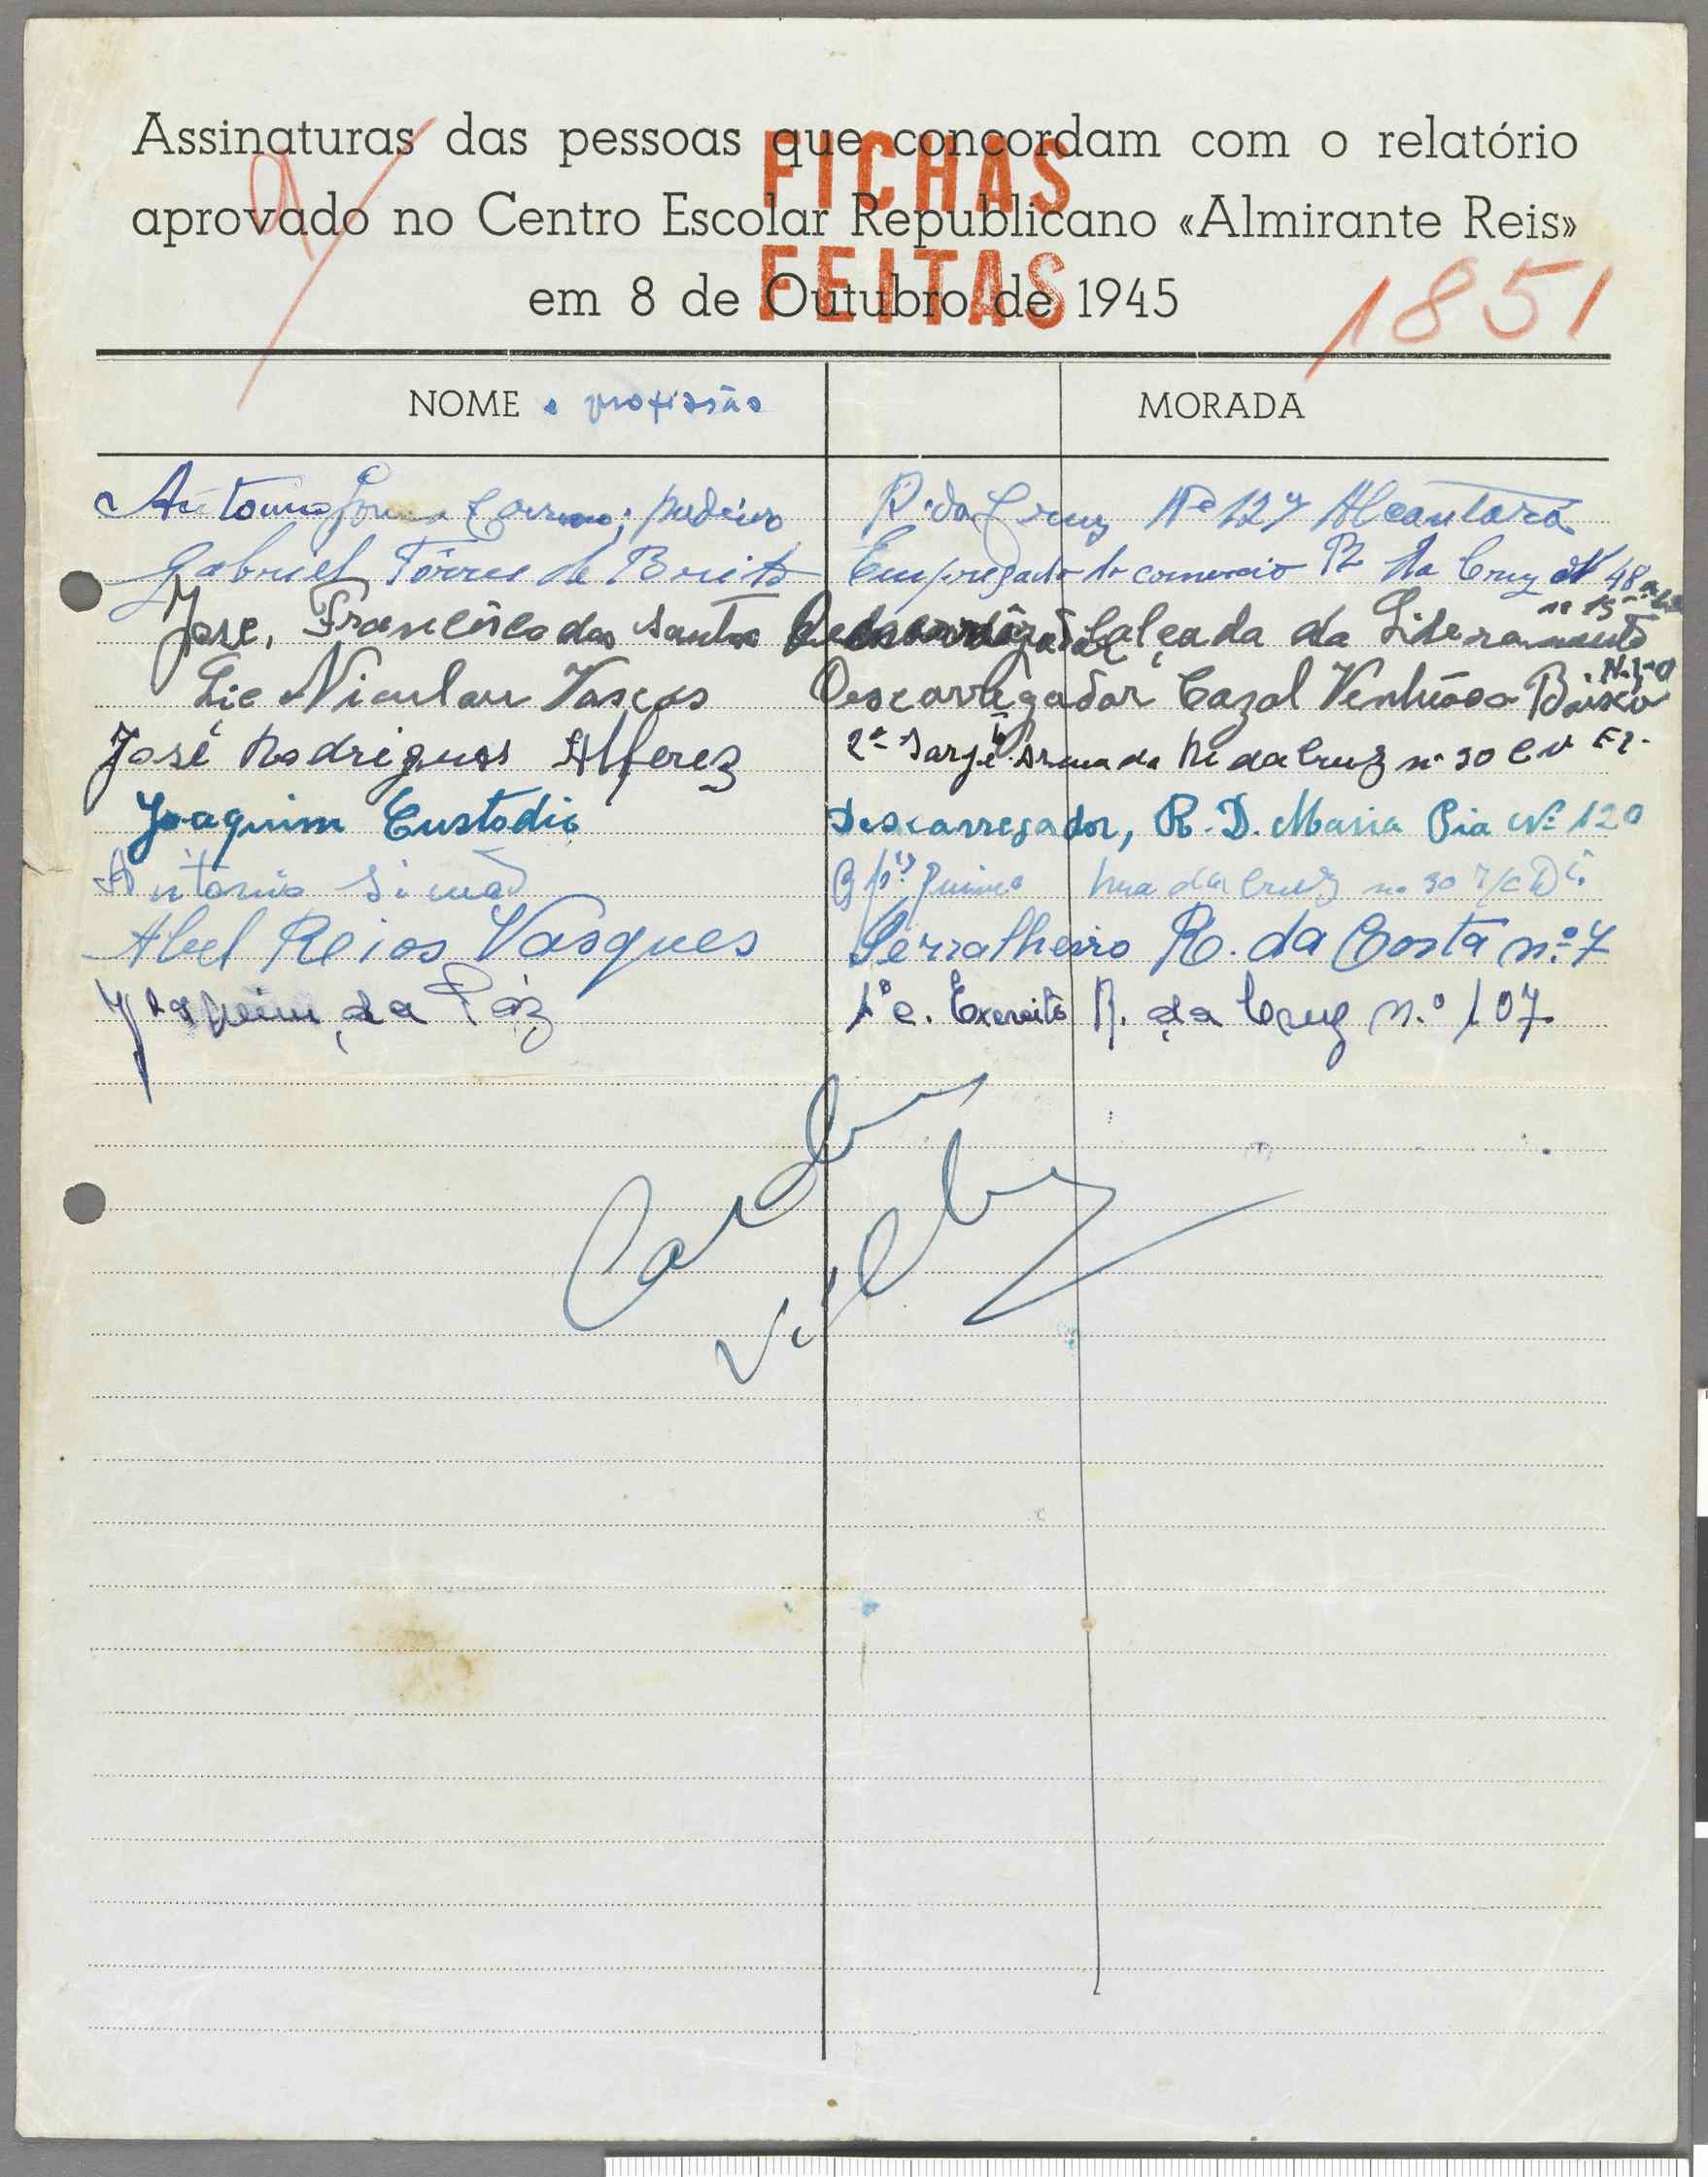 Assinaturas das pessoas que concordam com o relatório
aprovado no Centro Escolar Republicano «Almirante Reis»
em 8 de Outubro de 1945
FICHAS
FEITAS
1851
NOME e profissão MORADA
Antonio pedreiro R. da Cruz Nº 127 Alcantara
Gabriel Tôrres de Brito Empregado do comercio R. da Cruz Nº 48
José, Francisco dos Santos Descarregador Calçada do Livramento nº 15
Nicolau Vascos Descarregador Cazal Ventôso Baixo
José Rodrigues Alferez 2º Sarg. Armada R. da Cruz nº 30
Joaquim Custodio Descarregador, R. D. Maria Pia Nº 120
Antonio Simão Rua da Cruz nº 30 r/c Dº
Abel Reios Vasques Serralheiro R. da Costa n.º 7
Joaquim da Páz 1º c. Exercito R. da Cruz n.º 107